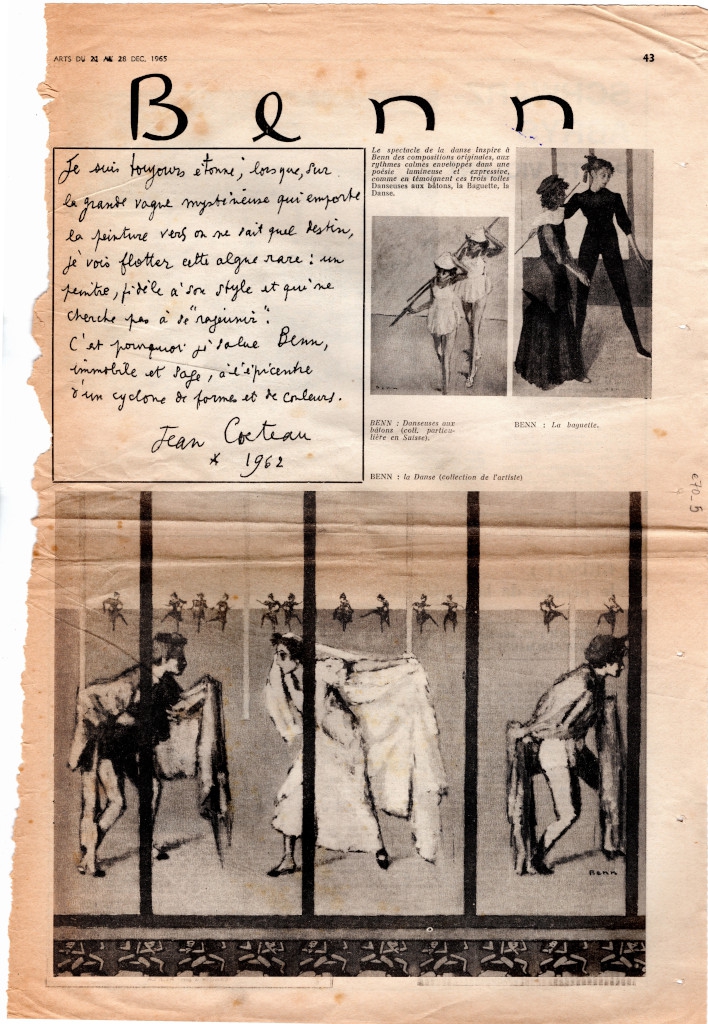 ARTS DU 21 AU 28 DEC. 1965
43
Benn
Je suis toujours étonné, lorsque, sur
la grande vague mystérieuse qui emporte
la peinture vers on ne sait quel destin,
je vois flotter cette algue rare : un
peintre, fidèle à son style et qui ne
cherche pas à se "rajeunir".
C'est pourquoi je salue Benn,
immobile et sage, à l'épicentre
d'un cyclone de formes et de couleurs.
Jean Cocteau
* 1962
Le spectacle de la danse inspire à
Benn des compositions originales, aux
rythmes calmes enveloppés dans une
poésie lumineuse et expressive,
comme en témoignent ces trois toiles
Danseuses aux bâtons, la Baguette, la
Danse.
BENN : Danseuses aux
bâtons (coll. particu-
lière en Suisse).
BENN : La baguette.
BENN : la Danse (collection de l'artiste)
Benn